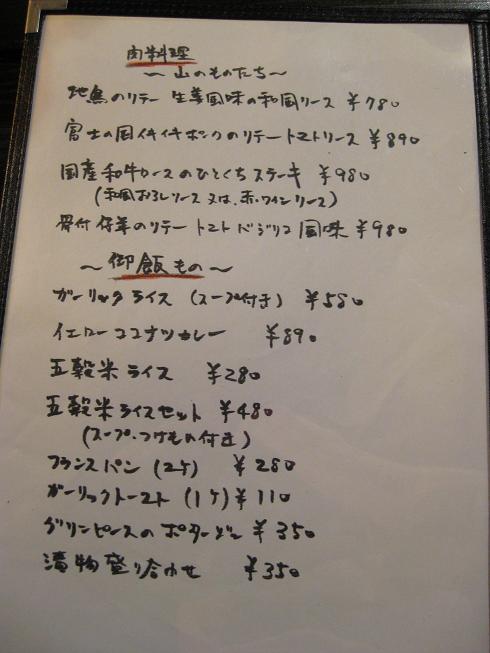 肉料理
～山のものたち～
地鳥のソテー 生姜風味の和風ソース ¥780
富士の国イキイキポークのソテー トマトソース ¥890
国産和牛ロースのひとくちステーキ ¥980
(和風おろしソース 又は、赤ワインソース)
骨付仔羊のソテー トマトバジリコ風味 ¥980
～御飯もの～
ガーリックライス (スープ付き) ¥580
イエローココナツカレー ¥890
五穀米ライス ¥280
五穀米ライスセット ¥480
(スープ・つけもの付き)
フランスパン (2ケ) ¥280
ガーリックトースト (1ケ) ¥110
グリンピースのポタージュ ¥350
漬物盛り合わせ ¥350